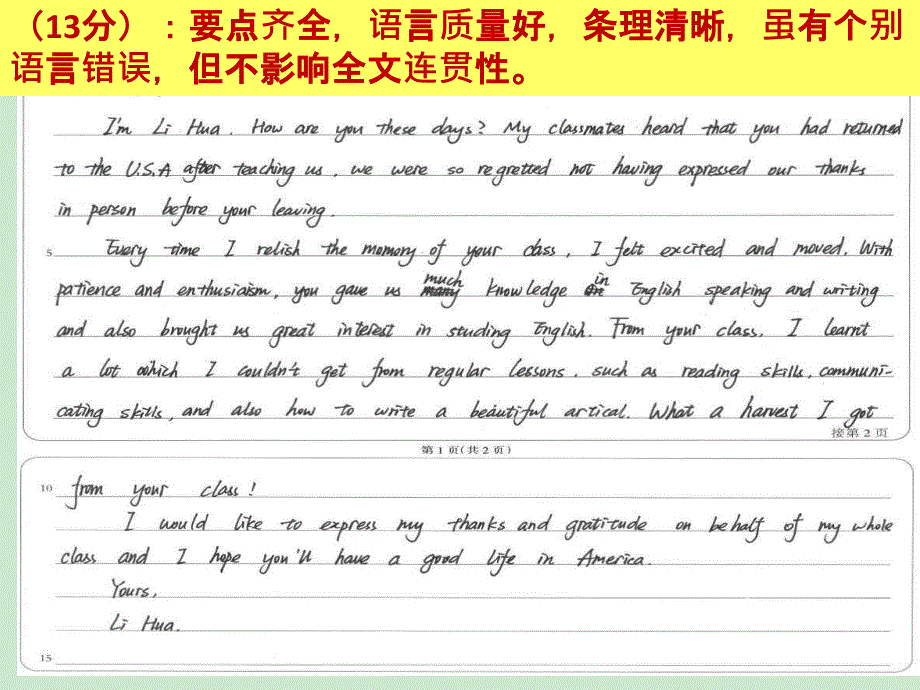 （13分）：要点齐全，语言质量好，条理清晰，虽有个别
语言错误，但不影响全文连贯性。
I'm Li Hua. How are you these days? My classmates heard that you had returned
to the U.S.A after teaching us, we were so regretted not having expressed our thanks
in person before your leaving.
5 Every time I relish the momory of your class, I felt excited and moved. With
patience and enthusiasm, you gave us much knowledge in English speaking and writing
and also brought us great interest in studing English. From your class, I learnt
a lot which I couldn't get from regular lessons, such as reading skills, communi-
cating skills, and also how to write a beautiful artical. What a harvest I got
接第2页
第1页(共2页)
10 from your class!
I would like to express my thanks and gratitude on behalf of my whole
class and I hope you'll have a good life in America.
Yours,
Li Hua.
15